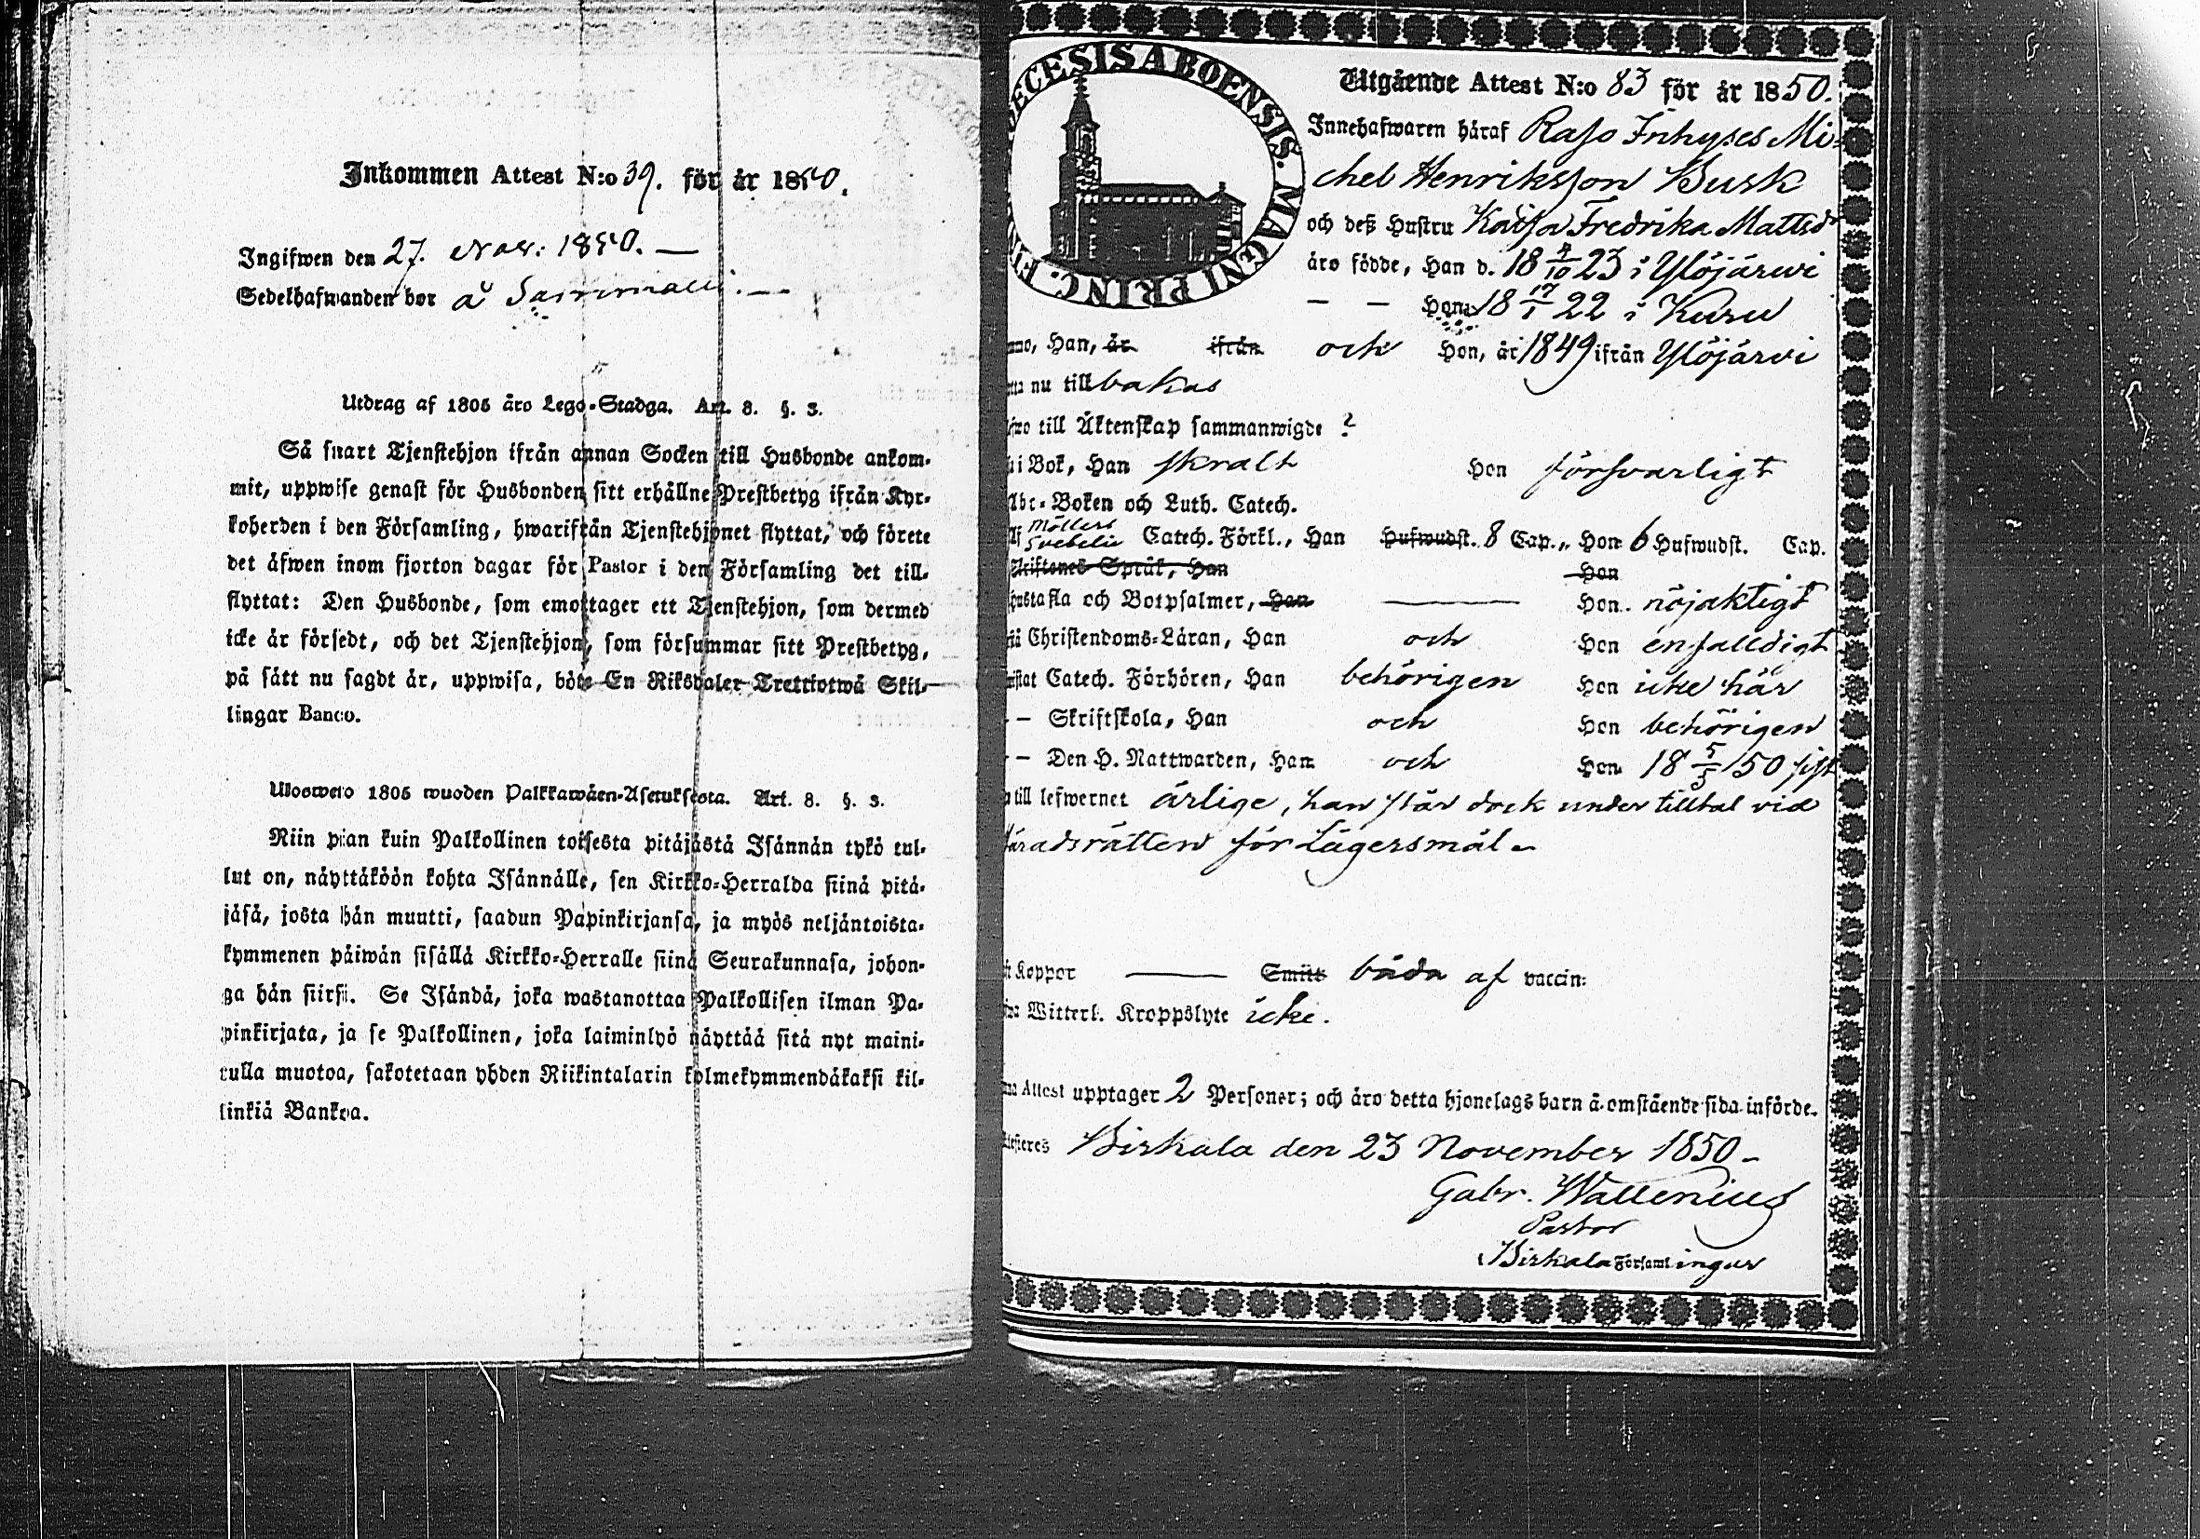 Inkommen Attest N:o 39. för år 1850.
Ingifwen den 27. Nov: 1850. —
Sedelhafwanden bor å
Utdrag af 1805 åro Lego-Stadga. Art. 8. §. 3.
Så snart Tjenstehjon ifrån annan Socken till Husbonde ankom-
mit, uppwise genast för Husbonden sitt erhållne Prestbetyg ifrån Kyr-
koherden i den Församling, hwarifrån Tjenstehjonet flyttat, och förete
det äfwen inom fjorton dagar för Pastor i den Församling det till-
flyttat: Den Husbonde, som emottager ett Tjenstehjon, som dermed
icke är försedt, och det Tjenstehjon, som försummar sitt Prestbetyg,
på sätt nu sagdt är, uppwisa, böte En Riksdaler Trettiotwå Skil-
lingar Banco.
Ulosweto 1805 wuoden Palkkawäen-Asetuksesta. Art. 8. §. 3.
Niin pian kuin Palkollinen toisesta pitäjästä Isännän tykö tul-
lut on, näyttäköön kohta Isännälle, sen Kirkko-Herralda siinä pitä-
jäsä, josta hän muutti, saadun Papinkirjansa, ja myös neljäntoista-
kymmenen päiwän sisällä Kirkko-Herralle siinä Seurakunnasa, johon-
ga hän siirsi. Se Isändä, joka wastanottaa Palkollisen ilman Pa-
pinkirjata, ja se Palkollinen, joka laiminlyö näyttää sitä nyt maini-
tulla muotoa, sakotetaan yhden Riikintalarin kolmekymmendäkaksi kil-
linkiä Bankoa.
ECESIS ABOENSIS. MAGNI PRINC. FI
Utgående Attest N:o 83 för år 1850.
Innehafwaren häraf Raso Inhyses Mi-
chel Henriksson Busk
och deß Hustru Kaisa Fredrika Mattsdr
äro födde, Han d. 18 4/10 23 i Ylöjärwi
— — Hon 18 17/1 22 i Kuru
Han, är ifrån och Hon, är 1849 ifrån Ylöjärvi
nu till bakas
till Äktenskap sammanwigde ?
i Bok, Han skralt Hon försvarligt
Abc-Boken och Luth. Catech.
Möllers
Svebelii Catech. Förkl., Han Hufwudst. 8 Cap., Hon 6 Hufwudst. Cap.
Skriftenes Språk, Han Hon
Hustafla och Botpsalmer, Han — Hon nöjaktigt
Christendoms-Läran, Han och Hon enfalldigt
Catech. Förhören, Han behörigen Hon icke här
— Skriftskola, Han och Hon behörigen
— Den H. Nattwarden, Han och Hon 18 5/5 50 sist
till lefwernet ärlige, han står dock under tilltal vid
Häradsrätten för Lägersmål
Koppor — Smitt båda af vaccin:
Witterl. Kroppslyte icke.
Attest upptager 2 Personer; och äro detta hjonelags barn å omstående sida införde.
Birkala den 23 November 1850
Gabr. Wallenius
Pastor
Birkala Församlingar